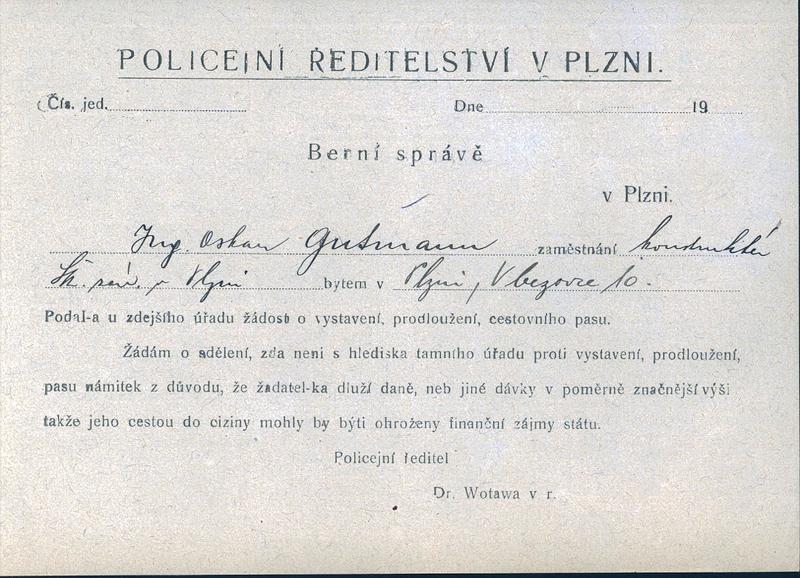 POLICEJNÍ ŘEDITELSTVÍ V PLZNI.
Čís. jed. Dne 19
Berní správě
v Plzni.
Ing. Oskar Gutmann zaměstnání konstruktér
Šk. záv. v Plzni bytem v Plzni, V bezovce 10.
Podal-a u zdejšího úřadu žádost o vystavení, prodloužení, cestovního pasu.
Žádám o sdělení, zda neni s hlediska tamního úřadu proti vystavení, prodloužení,
pasu námitek z důvodu, že žadatel-ka dluží daně, neb jiné dávky v poměrně značnější výši
takže jeho cestou do ciziny mohly by býti ohroženy finanční zájmy státu.
Policejní ředitel
Dr. Wotawa v r.